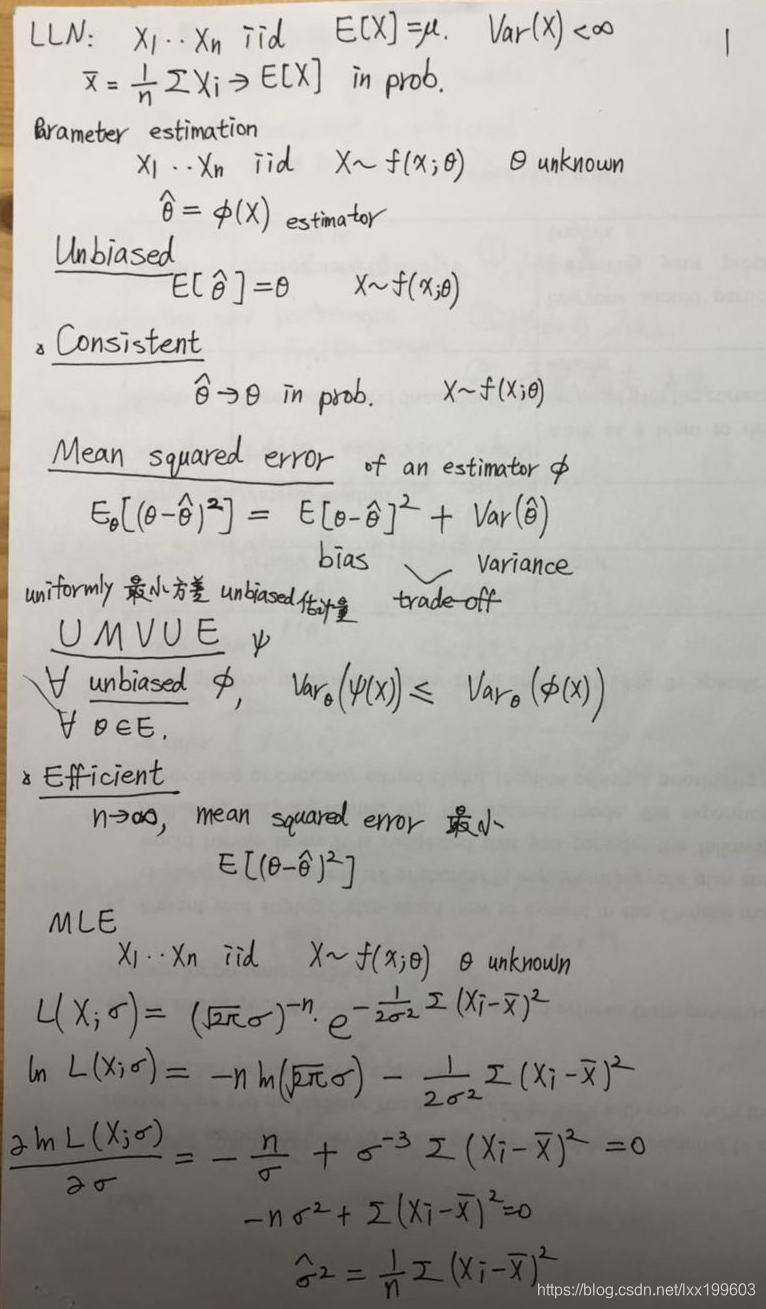 LLN: X1 ·· Xn iid E[X]=μ. Var(X)<∞ 1
x̄ = 1/n Σ Xi → E[X] in prob.
Parameter estimation
X1 ·· Xn iid X~f(x;θ) θ unknown
θ̂ = ϕ(X) estimator
Unbiased
E[θ̂]=θ X~f(x;θ)
Consistent
θ̂→θ in prob. X~f(x;θ)
Mean squared error of an estimator ϕ
Eθ[(θ-θ̂)²] = E[θ-θ̂]² + Var(θ̂)
bias variance
uniformly 最小方差 unbiased 估计量 trade-off
UMVUE ψ
∀ unbiased ϕ, Varθ(ψ(X)) ≤ Varθ(ϕ(X))
∀ θ∈E.
Efficient
n→∞, mean squared error 最小
E[(θ-θ̂)²]
MLE
X1 ·· Xn iid X~f(x;θ) θ unknown
L(X;σ) = (√2π σ)^-n · e^-1/2σ² Σ(Xi-x̄)²
ln L(X;σ) = -n ln(√2π σ) - 1/2σ² Σ(Xi-x̄)²
∂ ln L(X;σ)/∂σ = - n/σ + σ^-3 Σ(Xi-x̄)² =0
-nσ² + Σ(Xi-x̄)²=0
σ̂² = 1/n Σ(Xi-x̄)²
https://blog.csdn.net/lxx199603